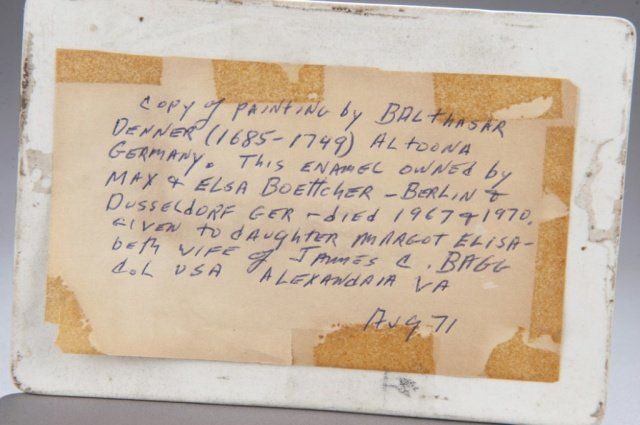 COPY of PAINTING by BALthASAR
DENNER (1685-1749) ALtOONA
GERMANY. This ENAMEL OWNED by
MAX & ELSA BOEttCHER - BERLIN &
DUSSELDORF GER - died 1967 & 1970.
GIVEN to dAUGHTER MARGOT ELISA-
bETH WIFE of JAMES C. BAGG
COL USA ALEXANDRIA VA
AUG 71